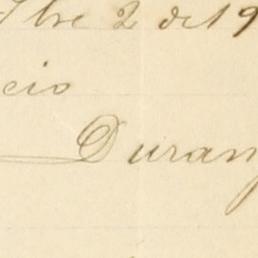 bre 2 de 19
cio
Duran